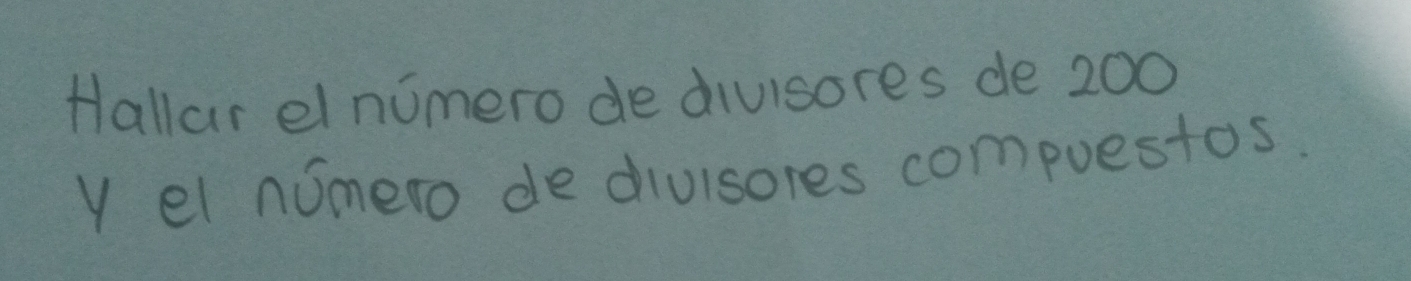 Hallar el número de divisores de 200
y el número de divisores compuestos.